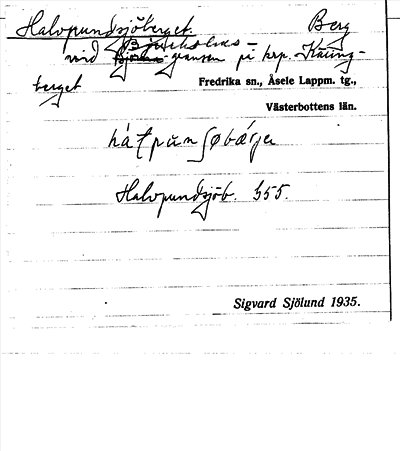 Halvpundsjöberget. Berg
vid Björksoles-gränsen på krp. Käring-
berget
Fredrika sn., Åsele Lappm. tg.,
Västerbottens län.
Halvpundsjöb. 355.
Sigvard Sjölund 1935.